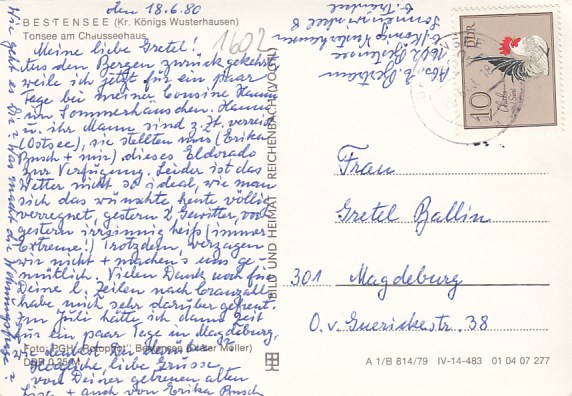 den 18.6.80
BESTENSEE (Kr. Königs Wusterhausen)
Tonsee am Chausseehaus
1602
Meine liebe Gretel!
Aus den Bergen zurückgekehrt
weile ich jetzt für ein paar
Tage bei meiner Cousine Hanna
im Sommerhäuschen. Hanna
u. ihr Mann sind z. Zt. verreist
(Ostsee), sie stellten mir (Erika
Busch + mir) dieses Eldorado
zur Verfügung. Leider ist das
Wetter nicht so ideal, wie man
sich das wünschte, heute völlig
verregnet, gestern 2 Gewitter, vor
gestern irrsinnig heiß (immer
Extreme!) Trotzdem, verzagen
wir nicht + machen's uns ge-
mütlich. Vielen Dank noch für
Deine l. Zeilen nach Cranzahl
habe mich sehr darüber gefreut.
Im Juli hätte ich dann Zeit
für ein paar Tage in Magdeburg,
wie denkst Du
Herzliche, liebe Grüsse
von Deiner getreuen alten
+ auch von Erika Busch
Wie geht es Dir? Was macht die
Foto: PGH "Rotophot" Bestensee (Dieter Möller)
DDR 0,25 M
BILD UND HEIMAT REICHENBACH (VOGTL)
Abs.
1602 Bestensee
b. Königs Wusterhausen
DDR
10
Frau
Gretel Ballin
301 Magdeburg
O. v. Guerickestr. 38
A 1/B 814/79 IV-14-483 01 04 07 277